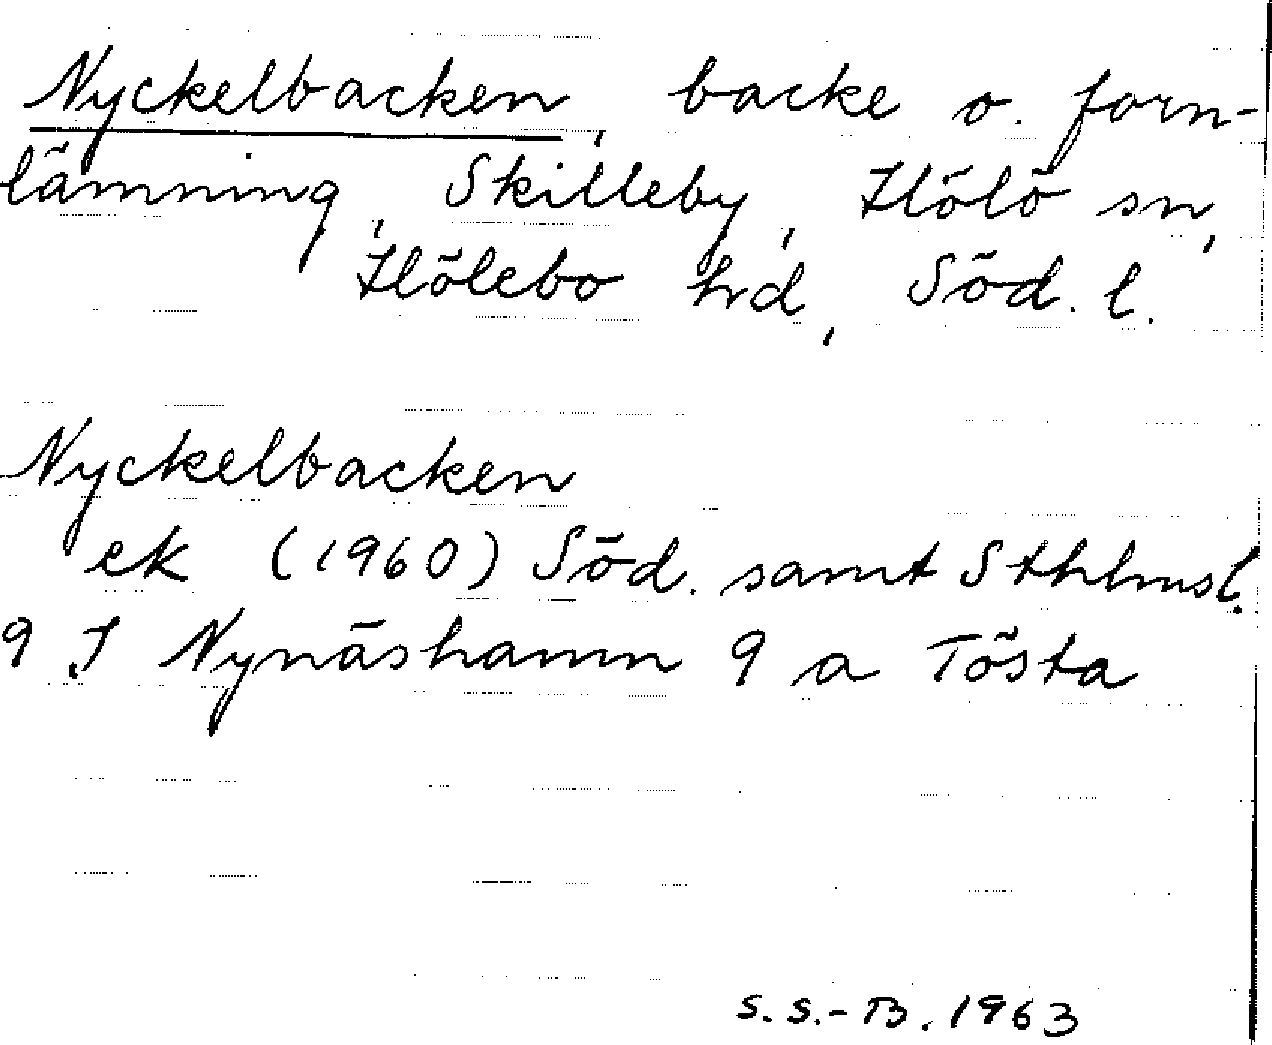 Nyckelbacken, backe o. forn-
lämning, Skilleby, Hölö sn,
Hölebo hd, Söd. l.
Nyckelbacken
ek (1960) Söd. samt Sthlmsl.
9 I Nynäshamn 9 a Tösta
S. S.-B. 1963